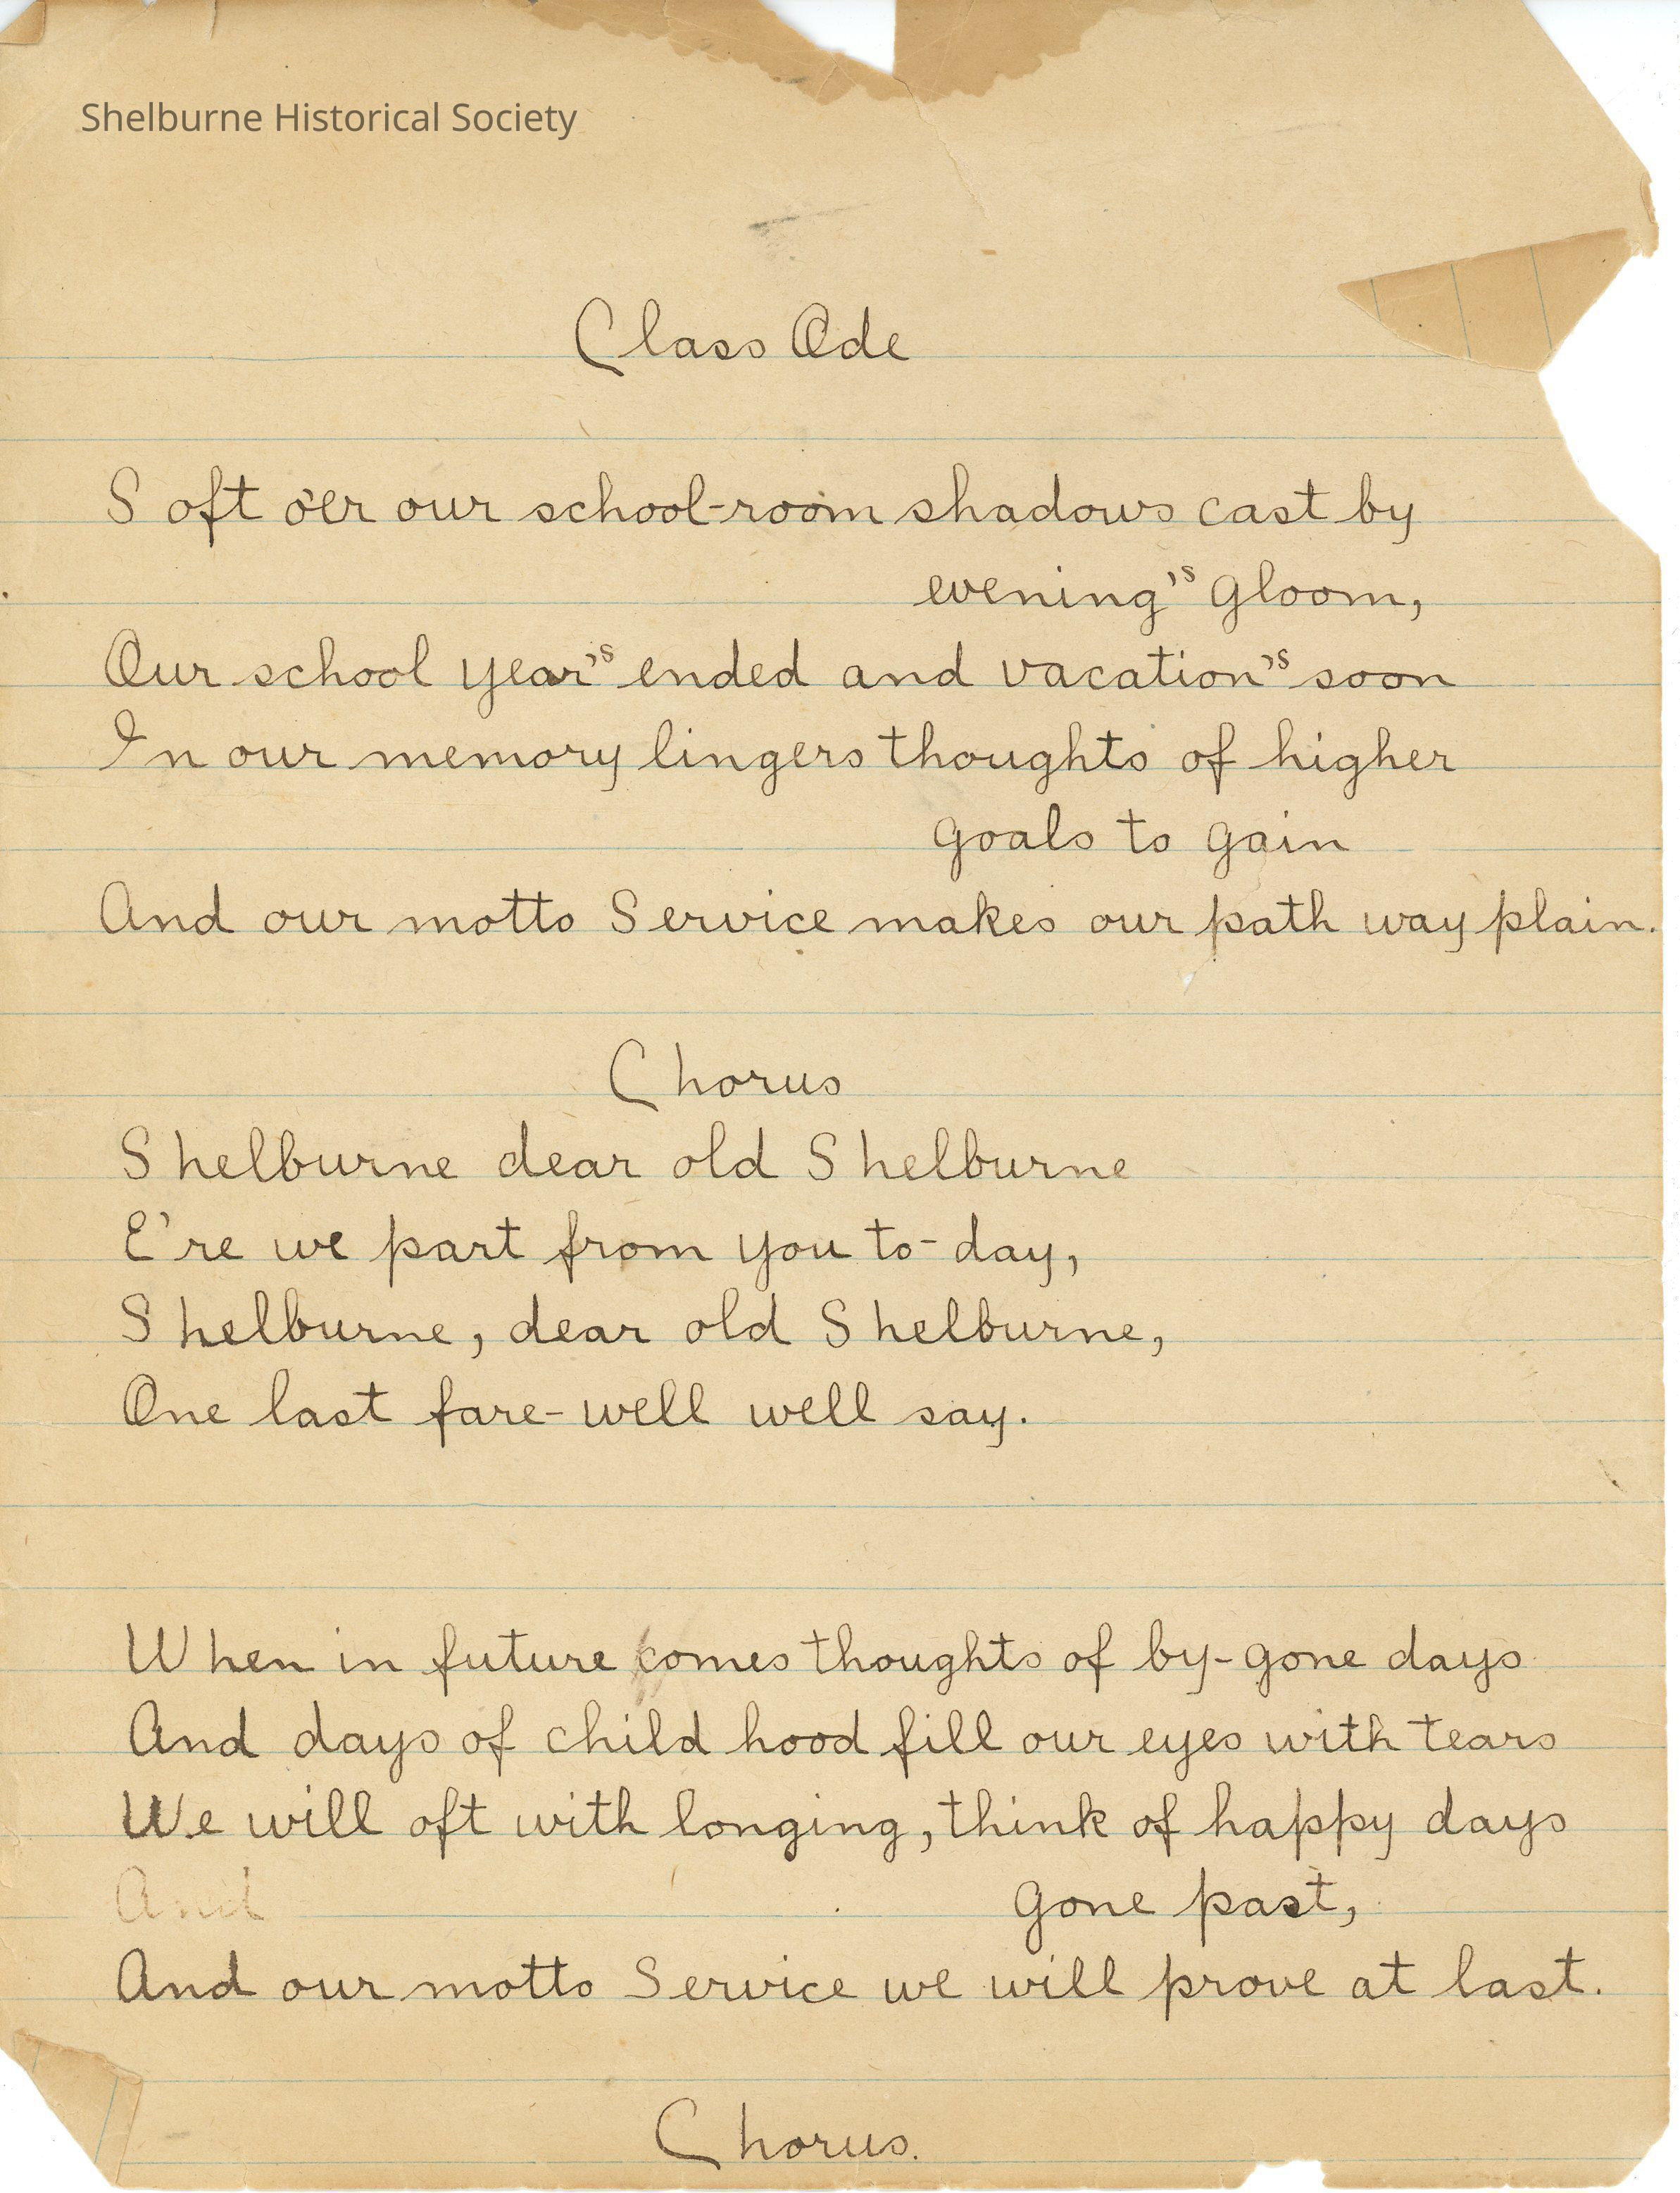 Shelburne Historical Society
Class Ode
Soft o'er our school-room shadows cast by
evening's gloom,
Our school year's ended and vacation's soon
In our memory lingers thoughts of higher
goals to gain
And our motto Service makes our path way plain.
Chorus
Shelburne dear old Shelburne
E're we part from you to-day,
Shelburne, dear old Shelburne,
One last fare-well well say.
When in future comes thoughts of by-gone days
And days of child hood fill our eyes with tears
We will oft with longing, think of happy days
And gone past,
And our motto Service we will prove at last.
Chorus.